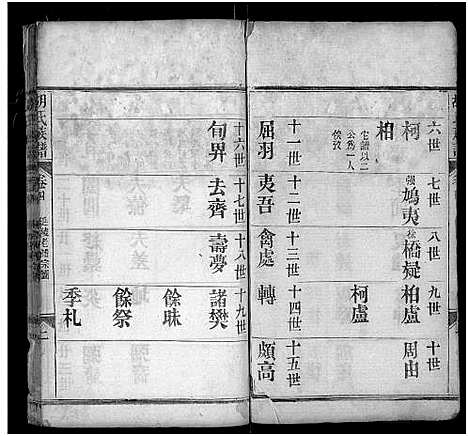 六世
柯
柏
宅譜以二
公為一人
俟攷
七世
強鳩夷
八世
橋疑
九世
柏盧
柯盧
十世
周由
十一世
屈羽
十二世
夷吾
十三世
禽處
十四世
轉
十五世
頗高
十六世
旬畀
十七世
去齊
十八世
壽夢
十九世
諸樊
餘昧
餘祭
季札
胡氏族譜
卷首
二